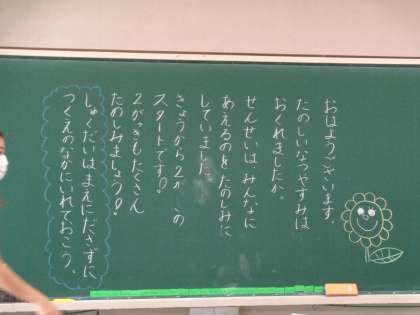 おはようございます。
たのしいなつやすみは
おくれましたか。
せんせいはみんなに
あえるのをたのしみに
していました
きょうから2が の
スタートです。
2がっきもたくさん
たのしみましょう!
しゅくだいはまえにださずに
つくえのなかにいれておこう。